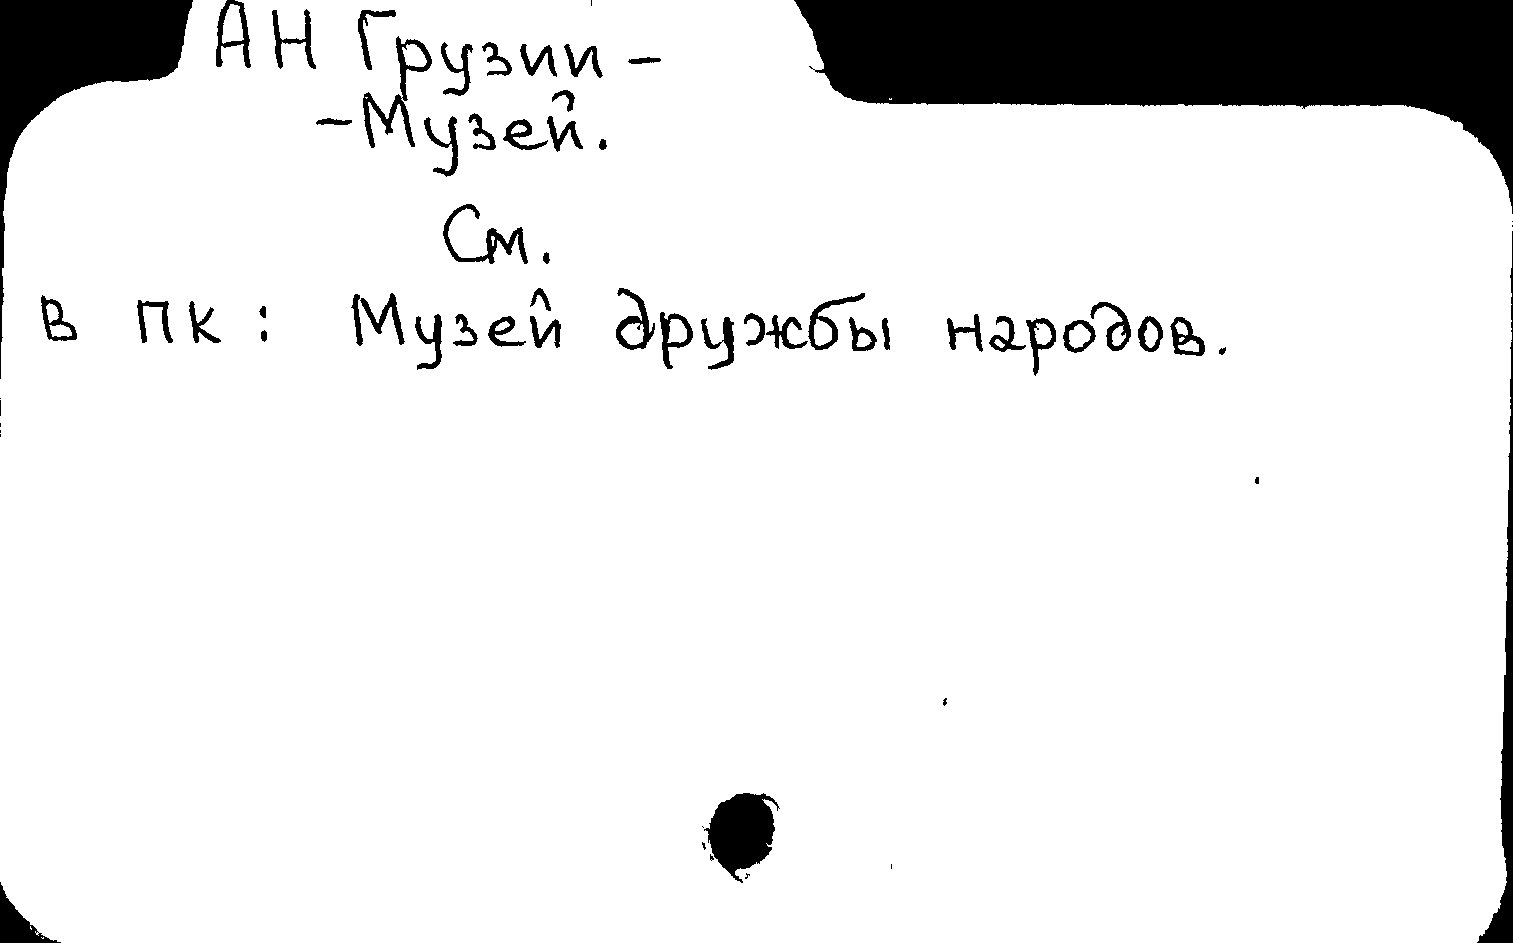 АН Грузии -
- Музей.
См.
в ПК: Музей дружбы народов.